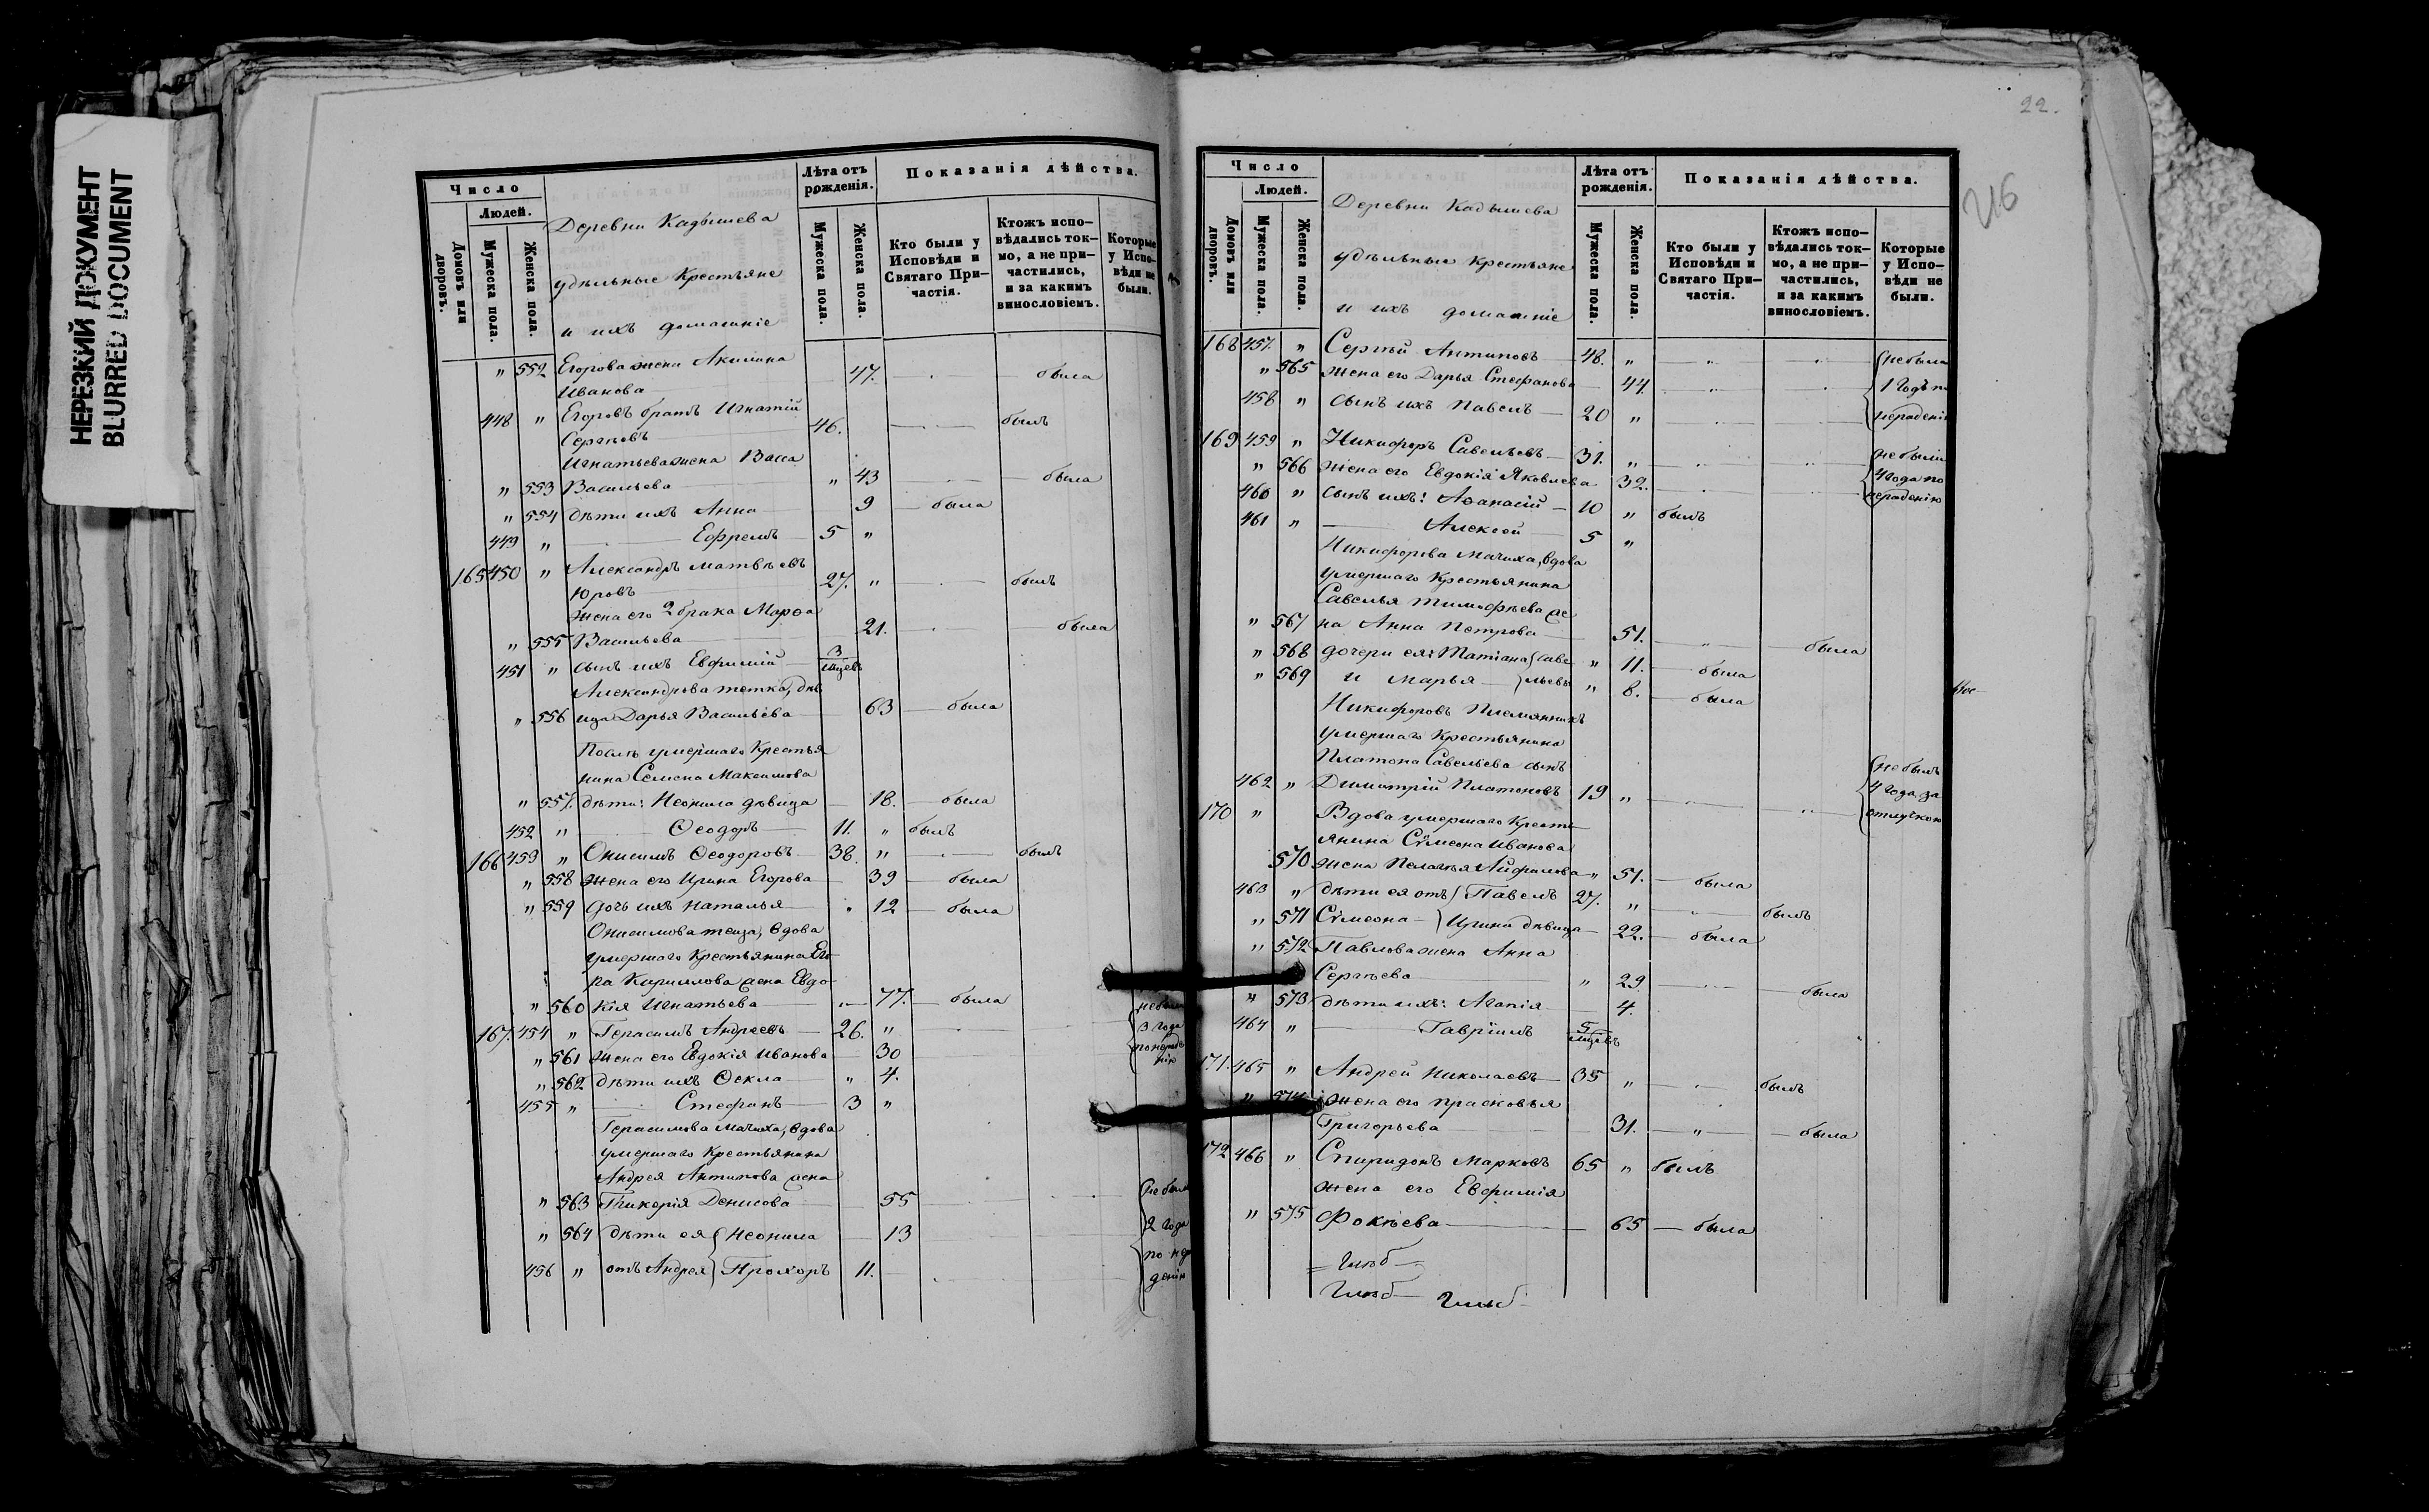 НЕРЕЗКИЙ ДОКУМЕНТ
BLURRED DOCUMENT
Число
Людей.
Домовъ или дворовъ.
Мужеска пола.
Женска пола.
Деревни Кадышева
удѣльные Крестьяне
и ихъ домашніе
Лѣта отъ рожденія.
Мужеска пола.
Женска пола.
Показанія дѣйства.
Кто были у Исповѣди и Святаго При-частія.
Ктожъ испо-вѣдались ток-мо, а не при-частились, и за какимъ винословіемъ.
Которые у Испо-вѣди не были.
" 552 Егорова жена Акилина
Иванова 47. была
448 " Егоровъ братъ Игнатій
Сергѣевъ 46. былъ
Игнатьева жена Васса
" 553 Васильева " 43 была
" 554 дѣти ихъ Анна 9 была
449 " Ефремъ 5 "
165 450 " Александръ Матвѣевъ
Юровъ 27. " былъ
жена его 2 брака Марѳа
" 555 Васильева 21. была
451 " сынъ ихъ Евфимій 3 мцевъ
Александрова тетка, дѣв
" 556 ица Дарья Васильева 63 была
Послѣ умершаго Крестья
нина Семена Максимова
" 557. дѣти: Неонила дѣвица 18. была
452 " Ѳеодоръ 11. " былъ
166 453 " Онисимъ Ѳеодоровъ 38. " былъ
" 558 жена его Ирина Егорова 39 была
" 559 дочь ихъ Наталья " 12 была
Онисимова теща, вдова
умершаго Крестьянина Его
ра Кириллова жена Евдо
" 560 кія Игнатьева " 77. была
167. 454 " Герасимъ Андреевъ 26. "
не были
3 года
по нераде
нію
" 561 жена его Евдокія Иванова 30
" 562 дѣти ихъ Ѳекла " 4.
455 " Стефанъ 3 "
Герасимова Мачиха, вдова
умершаго Крестьянина
Андрея Антипова жена
" 563 Гликерія Денисова 55
" 564 дѣти ея Неонила 13
456 " отъ Андрея Прохоръ 11.
не были
2 года
по нера
денію
22.
216
Число
Людей.
Домовъ или дворовъ.
Мужеска пола.
Женска пола.
Деревни Кадышева
удѣльные Крестьяне
и ихъ домашніе
Лѣта отъ рожденія.
Мужеска пола.
Женска пола.
Показанія дѣйства.
Кто были у Исповѣди и Святаго При-частія.
Ктожъ испо-вѣдались ток-мо, а не при-частились, и за какимъ винословіемъ.
Которые у Испо-вѣди не были.
168 457. " Сергѣй Антиповъ 48. " " "
" 565 жена его Дарья Стефанова 44. " "
458 " сынъ ихъ Павелъ 20 "
не были
1 годъ по
нераденію
169 459 " Никифоръ Савельевъ 31. "
" 566 жена его Евдокія Яковлева 32.
не были
4 года по
нераденію
460 " сынъ ихъ: Аѳанасій 10 " былъ
461 " Алексей 5 "
Никифорова Мачиха, вдова
умершаго Крестьянина
Савелья Тимофѣева же
" 567 на Анна Петрова 51. " была
" 568 дочери ея: Татіана Саве " 11. была
" 569 и Марья льевы " 8. была
Никифоровъ Племянникъ
умершаго Крестьянина
Платона Савельева сынъ
462 " Димитрій Платоновъ 19 "
не былъ
4 года за
отлучкою
170 " Вдова умершаго Кресть
янина Сѵмеона Иванова
570 жена Пелагья " 51. была
463 " дѣти ея отъ Павелъ 27. " " былъ
" 571 Сѵмеона Ирина дѣвица 22. была
" 572 Павлова жена Анна
Сергѣева " 29 была
" 573 дѣти ихъ: Агапія 4.
464 " Гавріилъ 5 мцевъ
171. 465 " Андрей Николаевъ 35 " " былъ
" 574 жена его Прасковья
Григорьева 31. " была
172 466 " Спиридонъ Марковъ 65 " былъ
жена его Евфимія
" 575 Фокѣева 65 была